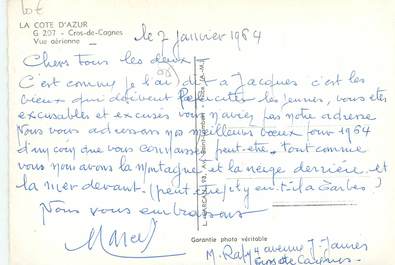 bot
LA COTE D'AZUR
G 207 - Cros-de-Cagnes
Vue aérienne
le 7 janvier 1964
Chers tous les deux
C'est comme je l'ai dit à Jacques c'est les
vieux qui doivent les jeunes, vous etes
excusables et excusés vous n'aviez pas notre adresse
Nous vous adressons nos meilleurs vœux pour 1964
d'un coin que vous connaissez peut-etre. Tout comme
vous nous avons la montagne et la neige derrière et
la mer devant. (peut etre il y en t-il à Tarbes)
Nous vous embrassons
Marcel
Garantie photo véritable
M. Raty 4 avenue J-Jaurès
Cros de Cagnes